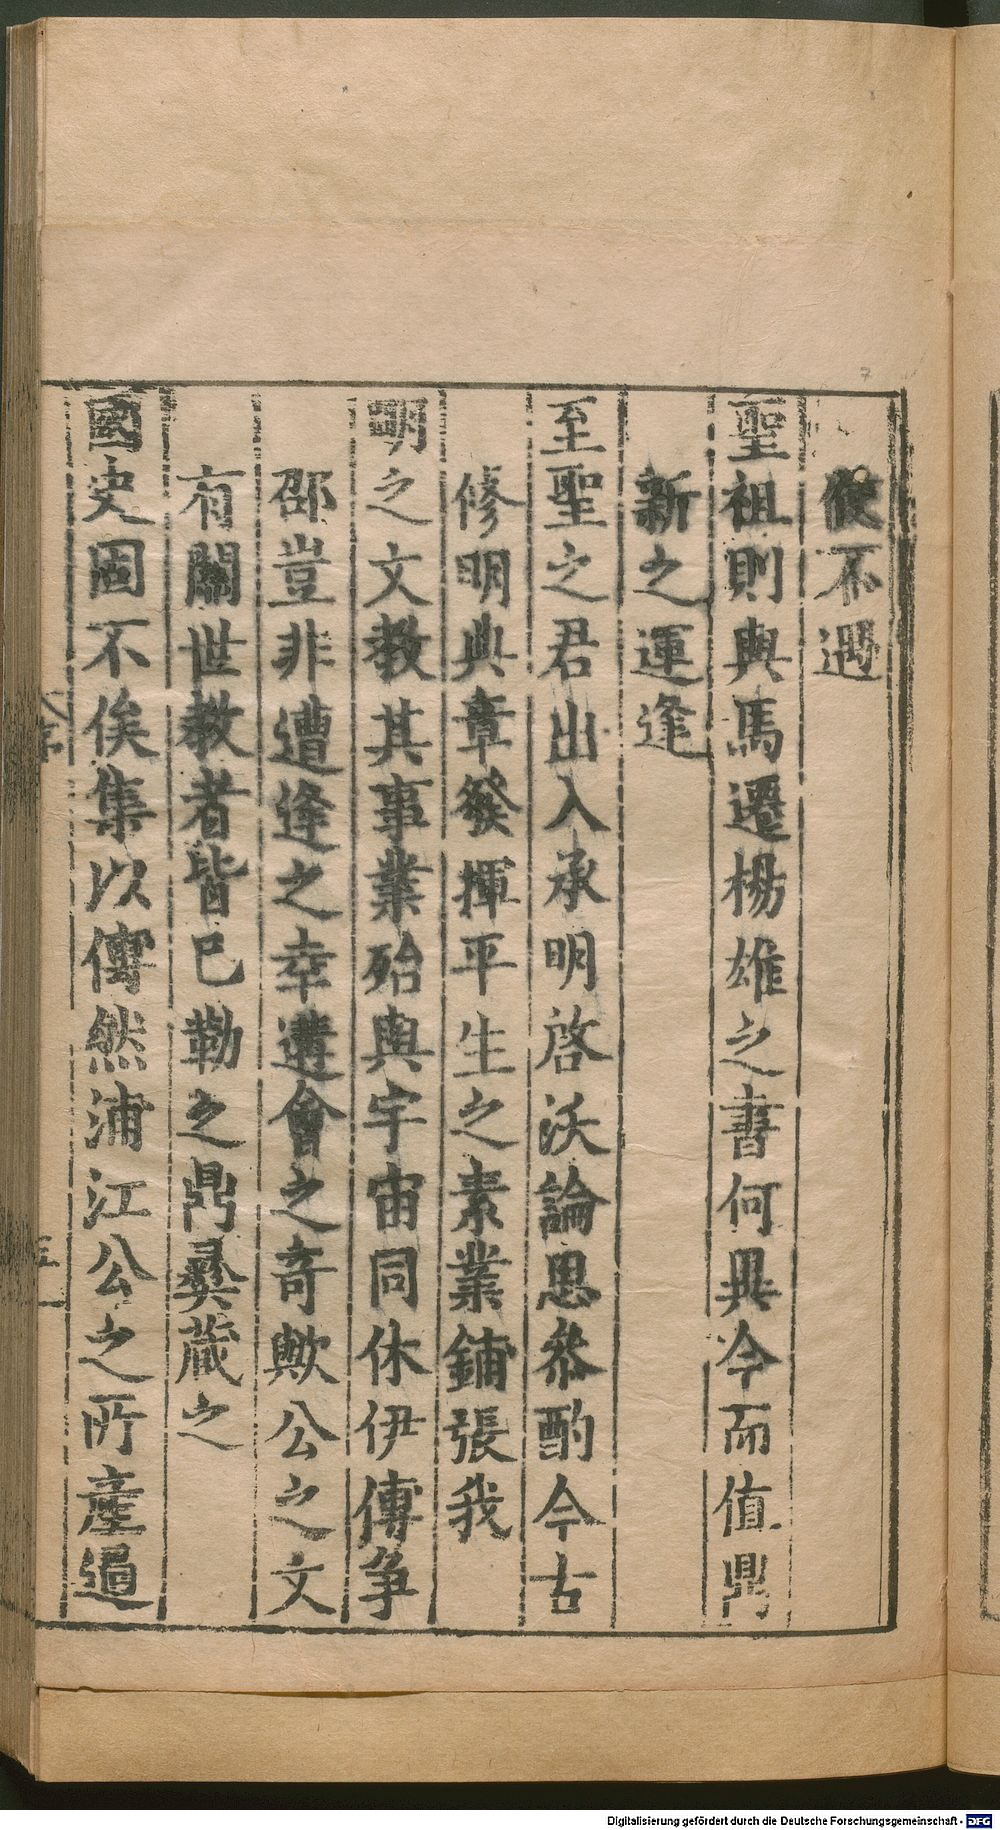 使不遇
聖祖則與馬遷楊雄之書何異今而值鼎
新之運逢
至聖之君出入承明啓沃論思叅酌今古
修明典章發揮平生之素業鋪張我
明之文教其事業殆與宇宙同休伊傳争
邵豈非遭逢之幸遘會之奇歟公之文
有關世教者皆巳勒之鼎彛蔵之
國史固不俟集以傳然浦江公之所產過
序
五
Digitalisierung gefördert durch die Deutsche Forschungsgemeinschaft - DFG